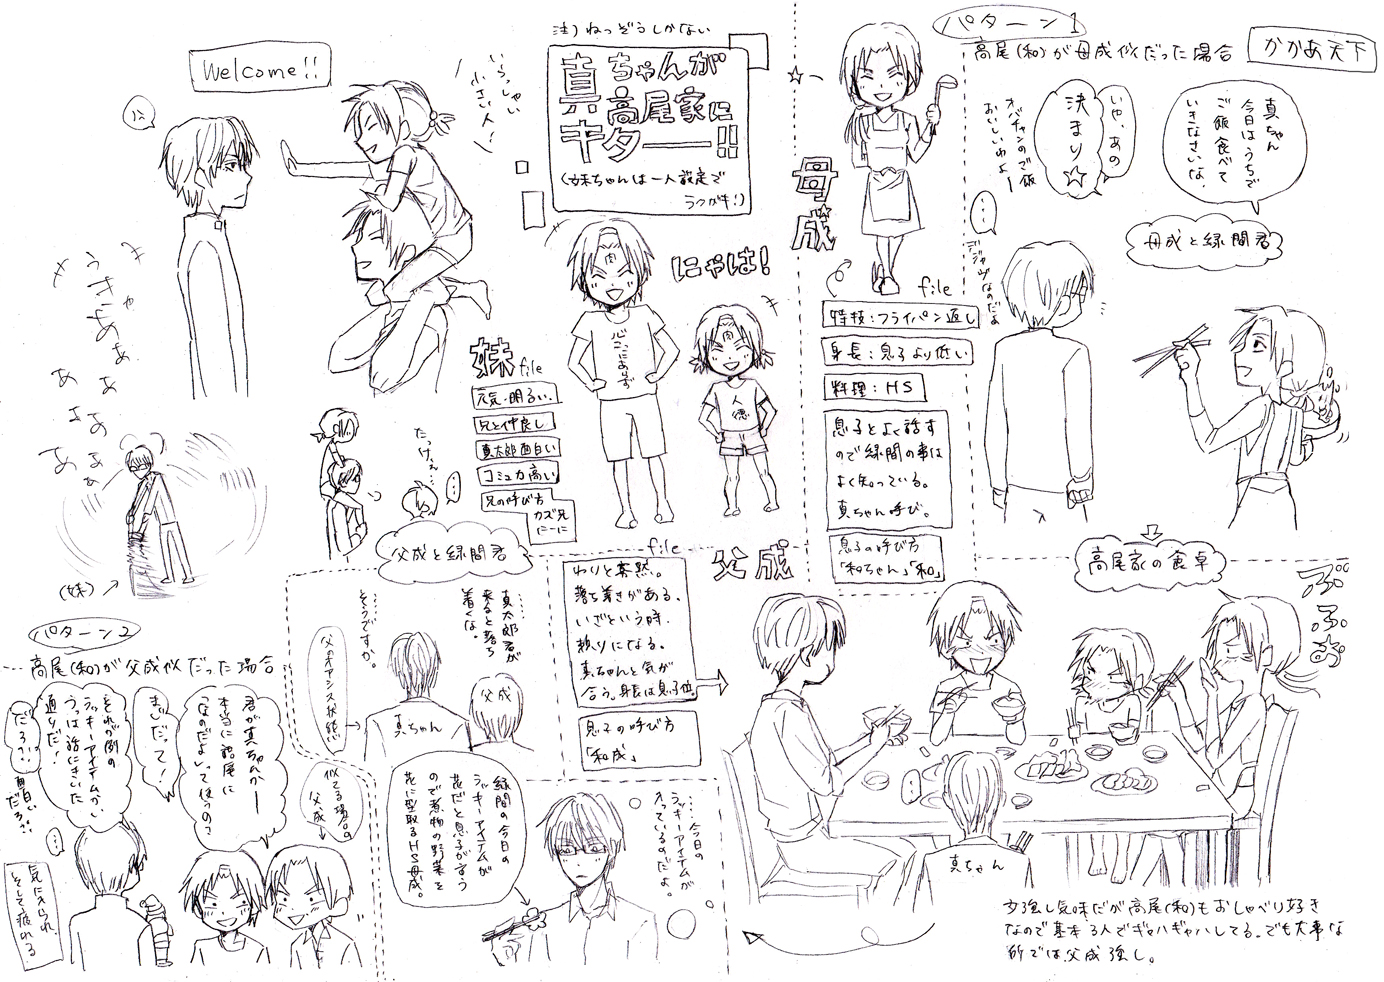 注)ねつぞうしかない
真ちゃんが
高尾家に
キター!!
(妹ちゃんは一人設定で
うつがキ!)
Welcome!!
いらっしゃい
小さい人!
うぎゃあぁぁ
あさぁぁ
あぁぁ
(妹)→
にゃは!
心ここにあらず
人徳
妹 file
元気・明るい。
兄と仲良し
真太郎面白い
コミュ力高い
兄の呼び方
カズ兄
にーに
たっけぇ…
…
パターン1
高尾(和)が母成似だった場合
かかあ天下
真ちゃん
今日はうちで
ご飯食べて
いきなさいな。
いや、あの
決まり☆
オバチャンのご飯
おいしいわよー
…
デジャヴなのだよ
母成と緑間君
母成
file
特技:フライパン返し
身長:息子より低い
料理:HS
息子とよく話す
ので緑間の事は
よく知っている。
真ちゃん呼び。
息子の呼び方
「和ちゃん」「和」
高尾家の食卓
真ちゃん
少強し気味だが高尾(和)もおしゃべり好き
なので基本3人でギャハギャハしてる。でも大事な
所では父成強し。
file
父成
わりと寡黙。
落ち着きがある。
いざという時、
頼りになる。
真ちゃんと気が
合う。身長は息子位
息子の呼び方
「和成」
父成と緑間君
真太郎君が
来ると落ち
着くな。
……
そうですか。
父のオアシス状態
真ちゃん
父成
緑間の今日の
ラッキーアイテムが
花だと息子が言う
ので煮物の野菜を
花に型取るHS母成。
……今日の
ラッキーアイテムが
入っているのだよ。
パターン2
高尾(和)が父成似だった場合
君が真ちゃんかー
本当に語尾に
「なのだよ」って使うの?
まじだって!
それが例の
ラッキーアイテムかい
うっは話にきいた
通りだ!
だろ?!
面白い
だろ?!
…
似てる場合の
父成
気に入られ、
そして疲れる